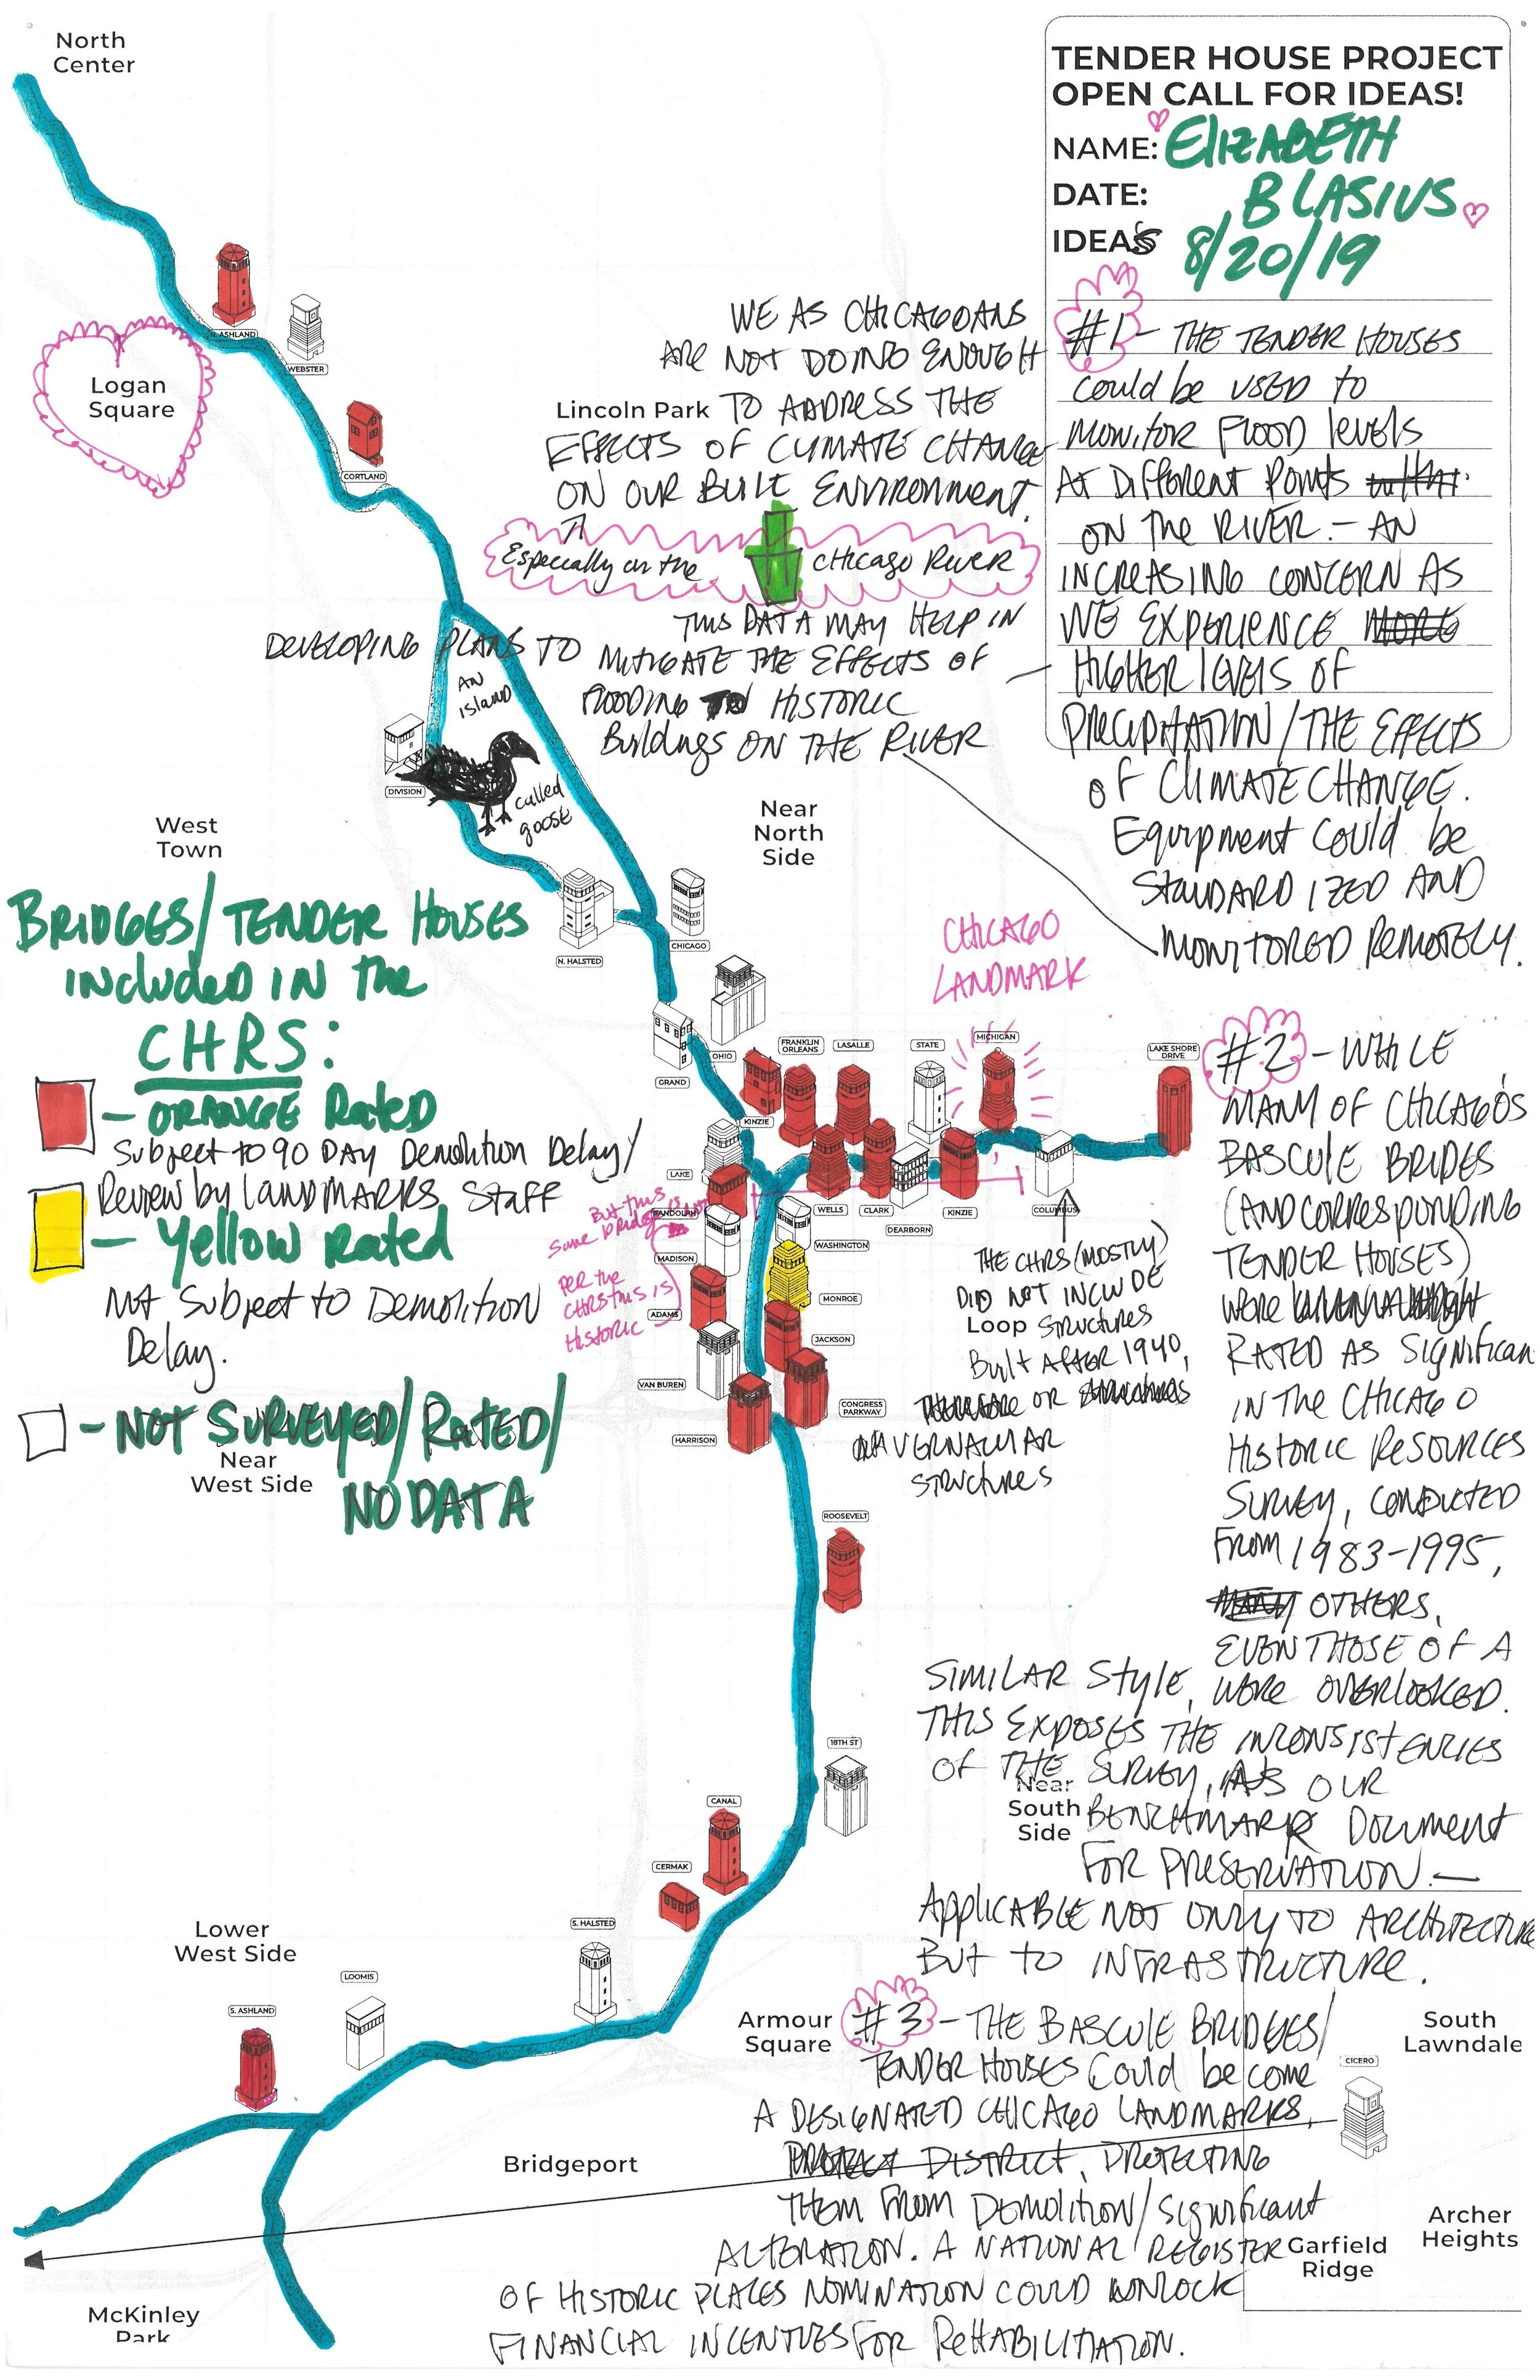 North
Center
TENDER HOUSE PROJECT
OPEN CALL FOR IDEAS!
NAME: ElizABETH
BLASIUS
DATE:
8/20/19
IDEAS
#1 - THE TENDER HOUSES
could be USED to
MONITOR FLOOD levels
AT DiffERENT Points
ON The RIVER. - AN
INCREASING CONCERN AS
WE EXPERIENCE
HIGHER levels OF
PRECIPITATION/THE EFFECTS
OF CLIMATE CHANGE.
Equipment could be
STANDARDIZED AND
MONITORED REMOTELY.
WE AS CHICAGOANS
ARE NOT DOING ENOUGH
TO ADDRESS THE
EFFECTS OF CLIMATE CHANGE
ON OUR BUILT ENVIRONMENT.
Especially on the Chicago River
THIS DATA MAY HELP IN
DEVELOPING PLANS TO MITIGATE THE EFFECTS OF
FLOODING TO HISTORIC
Buildings ON THE RIVER
Lincoln Park
N. ASHLAND
WEBSTER
Logan
Square
CORTLAND
AN
island
called
goose
DIVISION
Near
North
Side
West
Town
N. HALSTED
CHICAGO
OHIO
GRAND
BRIDGES/TENDER HOUSES
INCLUDED IN The
CHRS:
- ORANGE Rated
Subject to 90 DAY Demolition Delay/
Review by LANDMARKS Staff
- Yellow Rated
Not Subject to Demolition
Delay.
- NOT SURVEYED/RATED/
NO DATA
Near
West Side
CHICAGO
LANDMARK
FRANKLIN
ORLEANS
LASALLE
STATE
MICHIGAN
LAKE SHORE
DRIVE
KINZIE
LAKE
RANDOLPH
WELLS
CLARK
DEARBORN
KINZIE
COLUMBUS
WASHINGTON
MADISON
MONROE
ADAMS
JACKSON
VAN BUREN
CONGRESS
PARKWAY
HARRISON
But this
same bridge is not
PER the
CHRS this is
HISTORIC
THE CHRS (MOSTLY)
DID NOT INCLUDE
Loop
STRUCTURES
Built AFTER 1940,
OR
VERNACULAR
STRUCTURES
#2 - WHILE
MANY OF CHICAGO'S
BASCULE BRIDES
(AND CORRESPONDING
TENDER HOUSES)
WERE
RATED AS Significan
IN THE CHICAGO
HISTORIC RESOURCES
SURVEY, CONDUCTED
FROM 1983-1995,
OTHERS,
EVEN THOSE OF A
SIMILAR Style, WERE OVERLOOKED.
THIS EXPOSES THE INCONSISTENCIES
OF THE SURVEY, AS OUR
BENCHMARK Document
FOR PRESERVATION. -
Applicable NOT ONLY TO ARCHITECTURE
BUT TO INFRASTRUCTURE.
ROOSEVELT
18TH ST
Near
South
Side
CANAL
CERMAK
S. HALSTED
Lower
West Side
LOOMIS
S. ASHLAND
Armour
Square
#3 - THE BASCULE BRIDGES/
TENDER HOUSES Could be come
A DESIGNATED CHICAGO LANDMARKS,
DISTRICT, PROTECTING
THEM FROM DEMOLITION/Significant
ALTERATION. A NATIONAL REGISTER
OF HISTORIC PLACES NOMINATION COULD UNLOCK
FINANCIAL INCENTIVES FOR REHABILITATION.
South
Lawndale
CICERO
Bridgeport
Archer
Heights
Garfield
Ridge
McKinley
Park